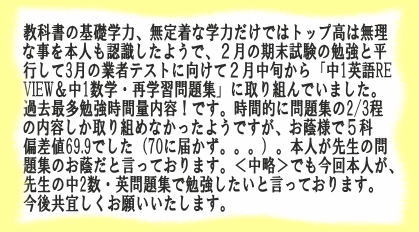 教科書の基礎学力、無定着な学力だけではトップ高は無理
な事を本人も認識したようで、２月の期末試験の勉強と平
行して3月の業者テストに向けて２月中旬から「中1英語RE
VIEW＆中1数学・再学習問題集」に取り組んでいました。
過去最多勉強時間量内容！です。時間的に問題集の2/3程
の内容しか取り組めなかったようですが、お蔭様で５科
偏差値69.9でした（70に届かず。。。）。本人が先生の問
題集のお蔭だと言っております。＜中略＞でも今回本人が、
先生の中2数・英問題集で勉強したいと言っております。
今後共宜しくお願いいたします。